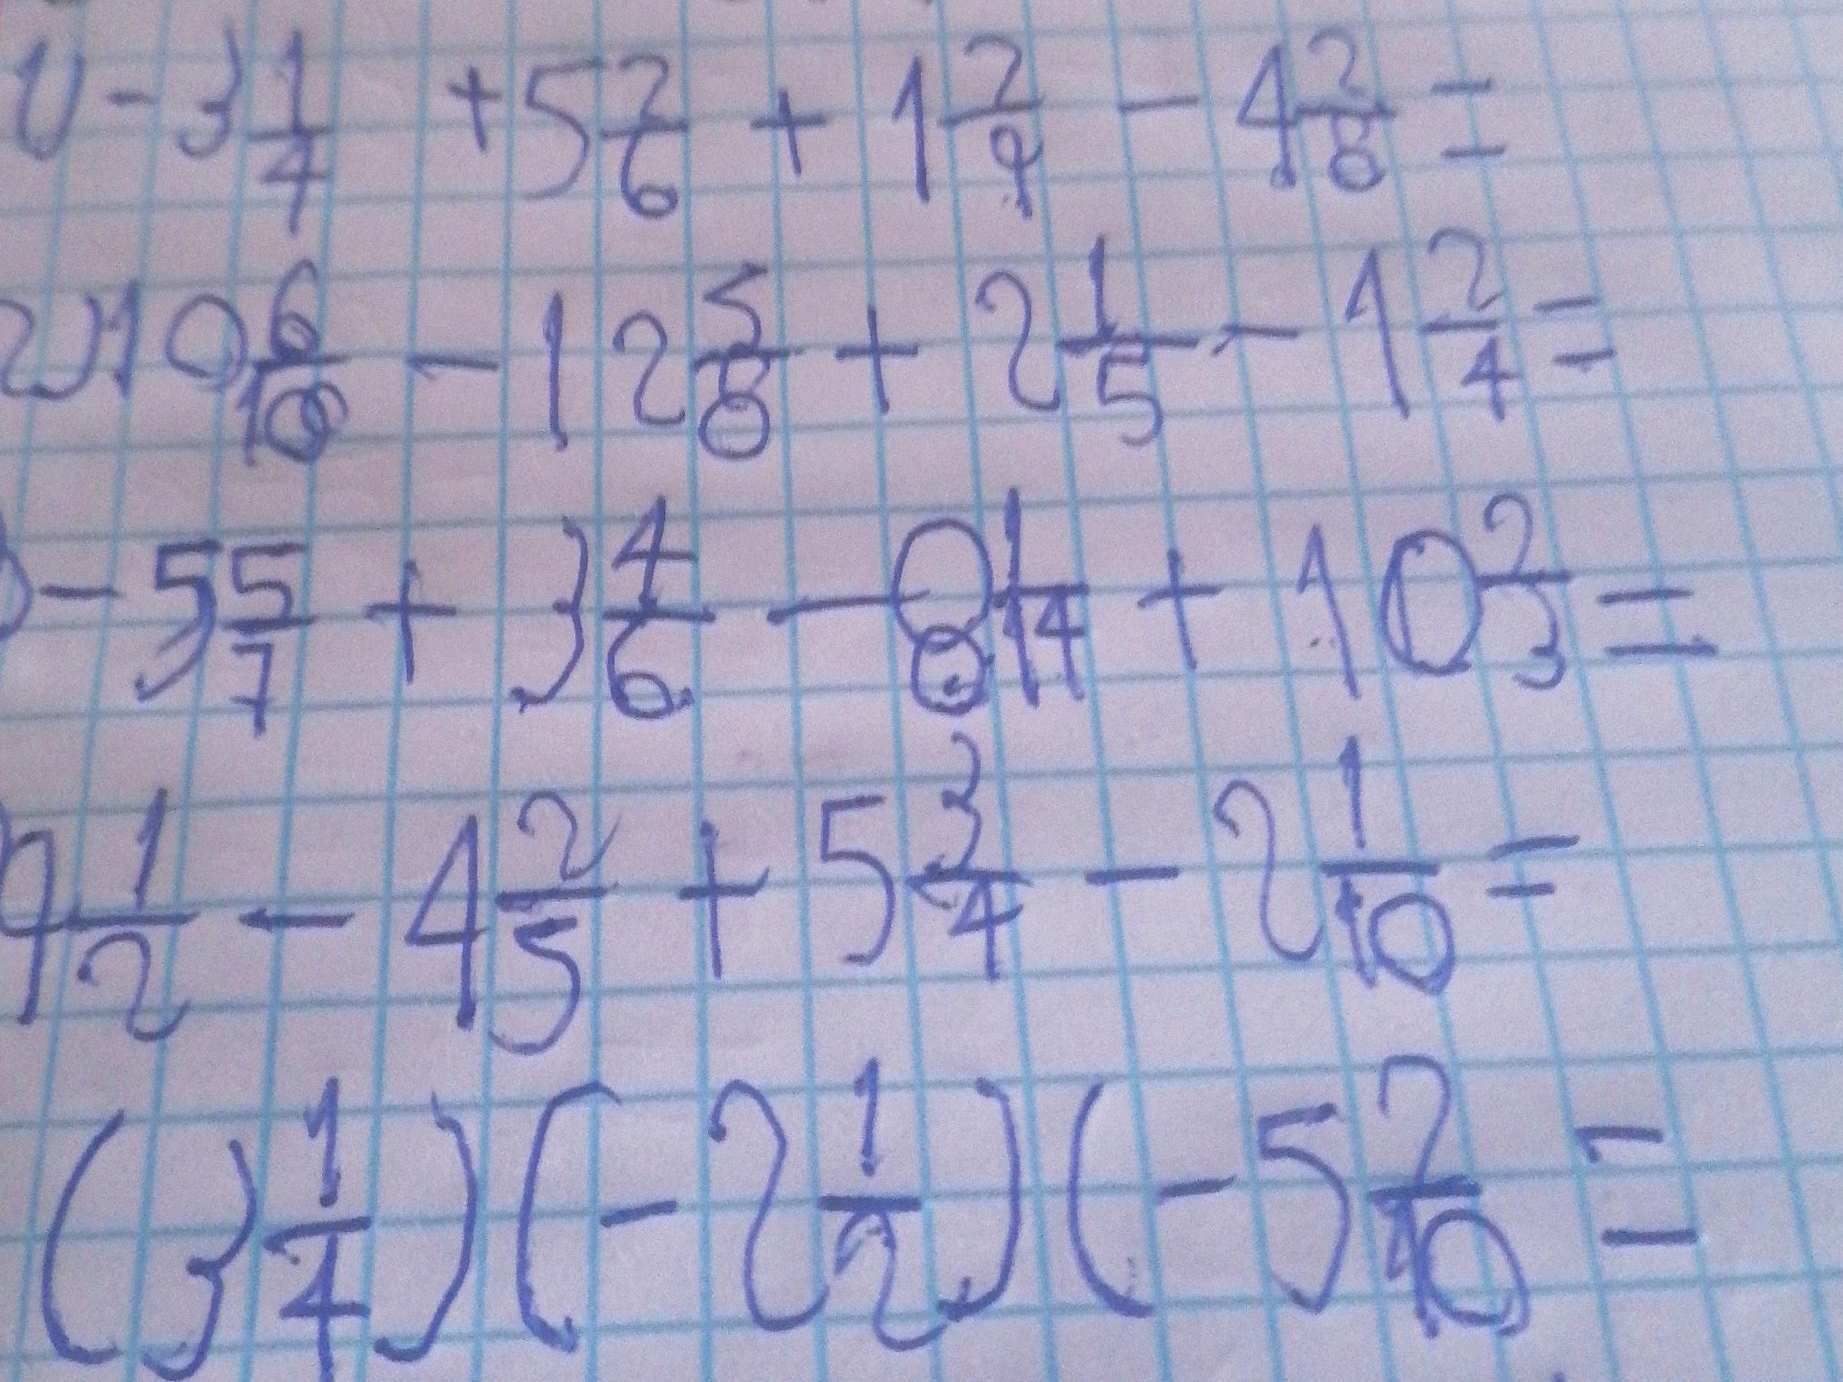 1) - 3 1/4 + 5 2/6 + 1 2/9 - 4 2/8 =
2) 10 6/10 - 12 5/8 + 2 1/5 - 1 2/4 =
) - 5 5/7 + 3 4/6 - 8 1/14 + 10 2/3 =
) 9 1/2 - 4 2/5 + 5 3/4 - 2 1/10 =
(3 1/4) (- 2 1/2) (- 5 2/10 =